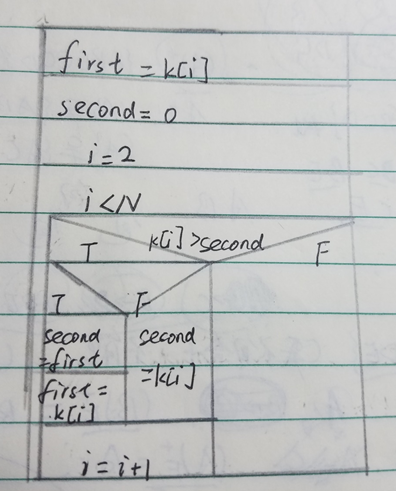 first = k[i]
second = 0
i=2
i<N
k[i]>second
T
F
T
F
second
=first
first=
k[i]
second
=k[i]
i=i+1